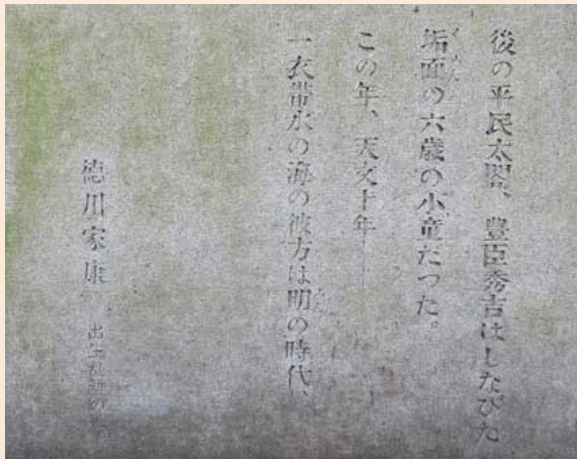 後の平民太閤、豊臣秀吉はしなびた
垢面の六歳の小童だった。
この年、天文十年―
一衣帯水の海の彼方は明の時代、
徳川家康 出生乱離の